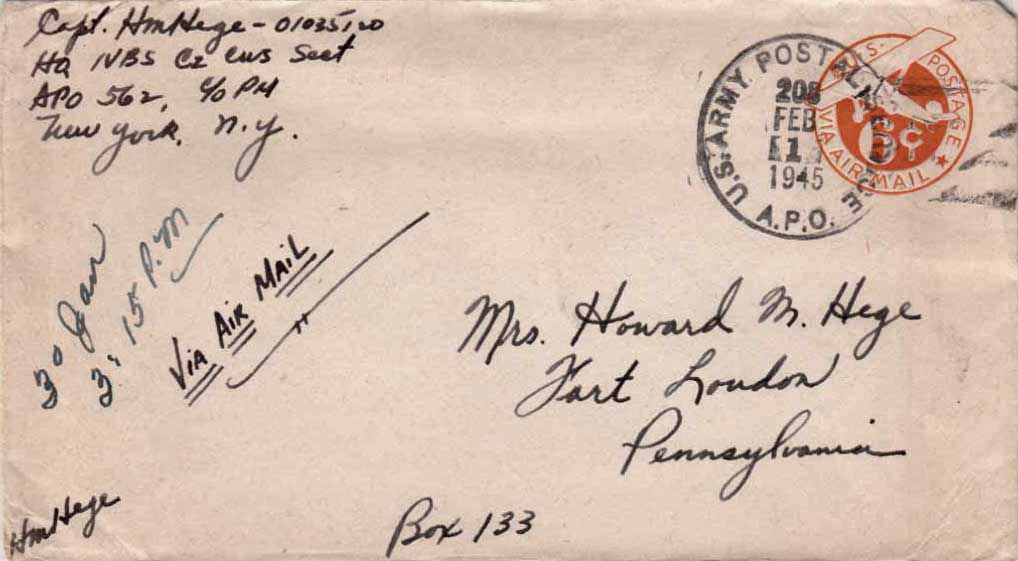 Capt. HmHege - 01035120
HQ NBS Cz CWS Sect
APO 562, c/o PM
New York, N.Y.
U.S. ARMY POSTAL SERVICE
A.P.O.
208
FEB
1
1945
U.S. POSTAGE
6¢
VIA AIR MAIL
30 Jan
3:15 P.M
VIA AIR MAIL
Mrs. Howard M. Hege
Fort Loudon
Pennsylvania
HmHege
Box 133